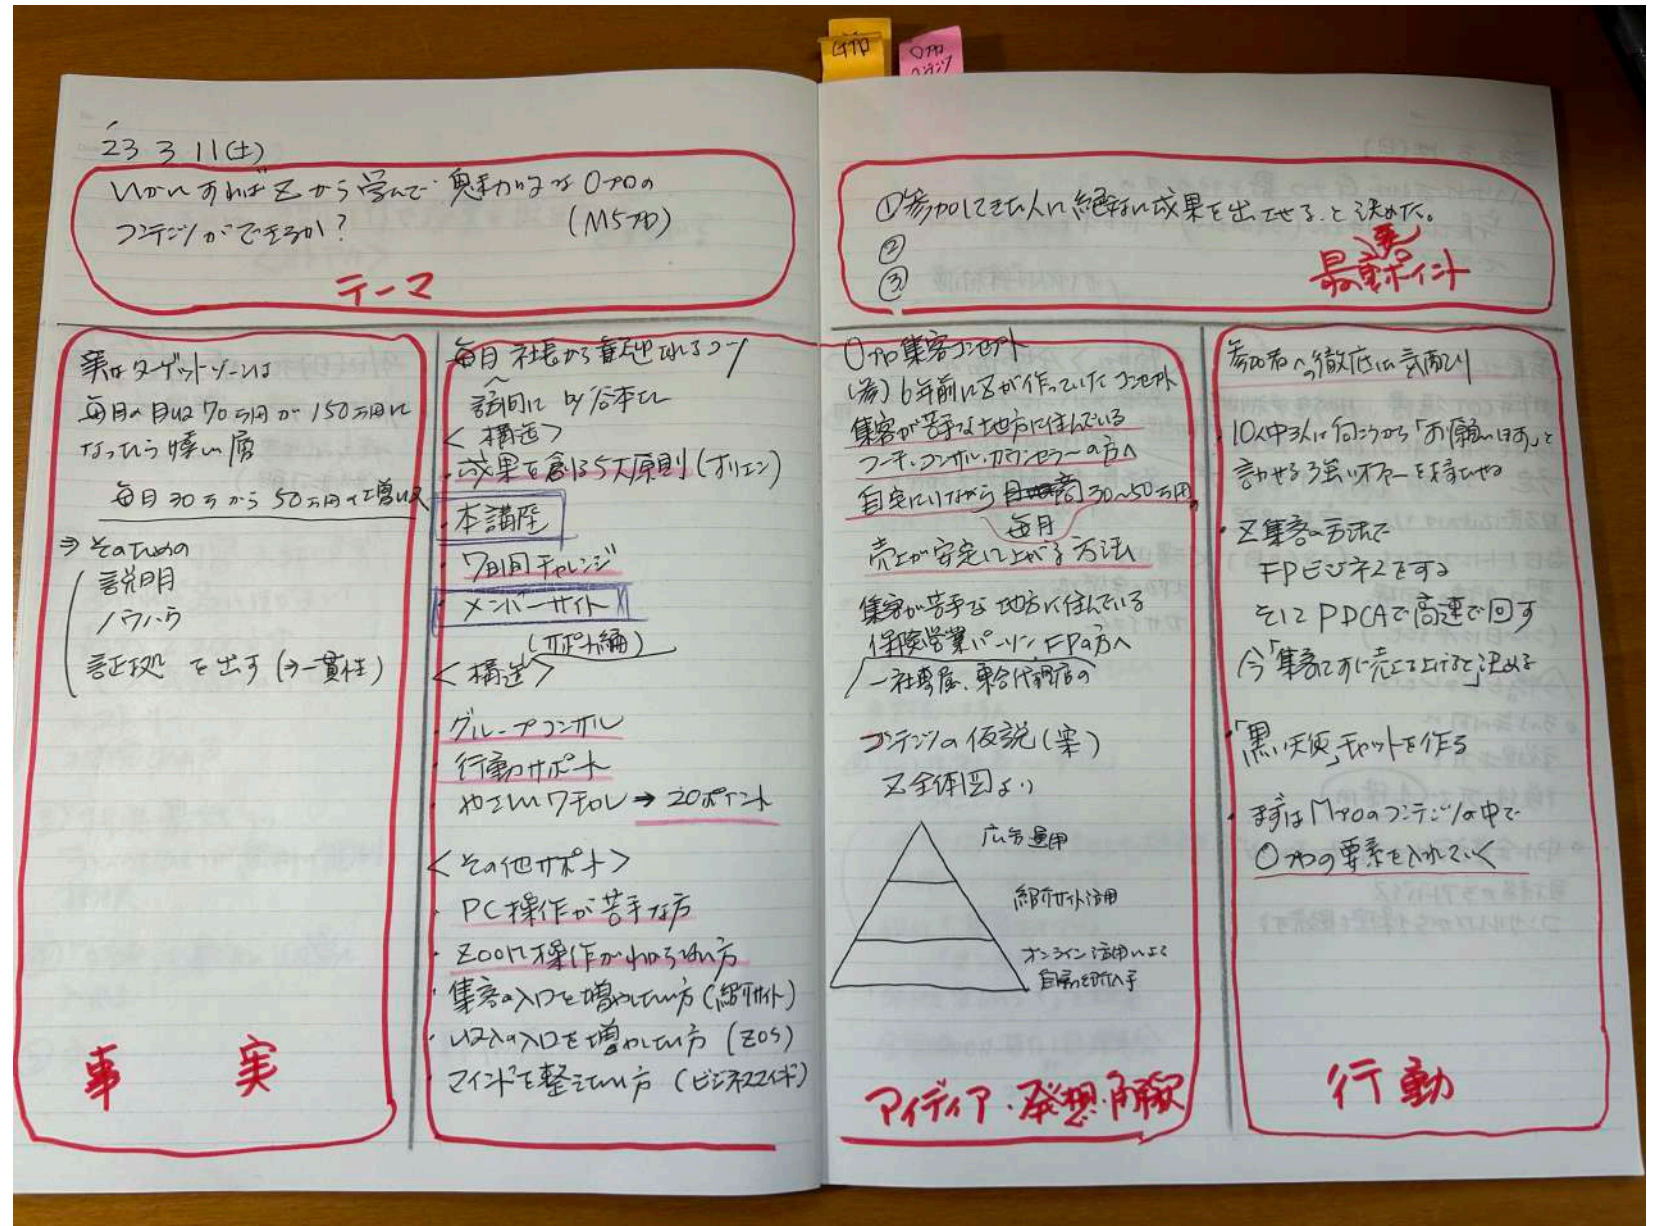 Gプロ
Oプロ
コンテンツ
23 3 11(土)
いかにすればZから学んで魅力的なOプロの
コンテンツができるか?
(M5プロ)
テーマ
①参加してきた人に絶対に成果を出させると決めた。
②
③
最重要ポイント
実はターゲットゾーンは
毎月の月収70万円が150万円に
なったら嬉しい層
毎月30万から50万円の増収
⇒そのための
説明
ノウハウ
証拠 を出す(⇒一貫性)
事 実
毎月 社長から
訪問に by谷本さん
<構造>
・成果を創る5大原則(オリエン)
・本講座
・7日間チャレンジ
・メンバーサイト
(サポート編)
<構造>
・グループコンサル
・行動サポート
・やさしいワチャレ→20ポイント
<その他サポート>
・PC操作が苦手な方
・Zoom操作がわからない方
・集客の入口を増やしたい方(紹介サイト)
・リストの入口を増やしたい方(ZOS)
・マインドを整えたい方(ビジネスマインド)
Oプロ集客コンセプト
(考)6年前にZが作っていたコンセプト
集客が苦手な地方に住んでいる
コーチ・コンサル・カウンセラーの方へ
自宅にいながら 30~50万円
毎月
売上が安定して上がる方法
集客が苦手な地方に住んでいる
保険営業パーソン FPの方へ
一社専属、乗合代理店の
コンテンツの仮説(案)
Z全体図より
広告運用
紹介サイト活用
オンライン活用による
自動紹介入手
アイディア・発想・解釈
参加者への徹底した気配り
・10人中3人に向こうから「お願いします」と
言わせる強いオファーを
・Z集客の方法で
FPビジネスをする
そしてPDCAで高速で回す
今「集客せずに売上を上げると」決める
・「黒い天使」チャットを作る
・まずはMプロのコンテンツの中で
Oプロの要素を入れていく
行動